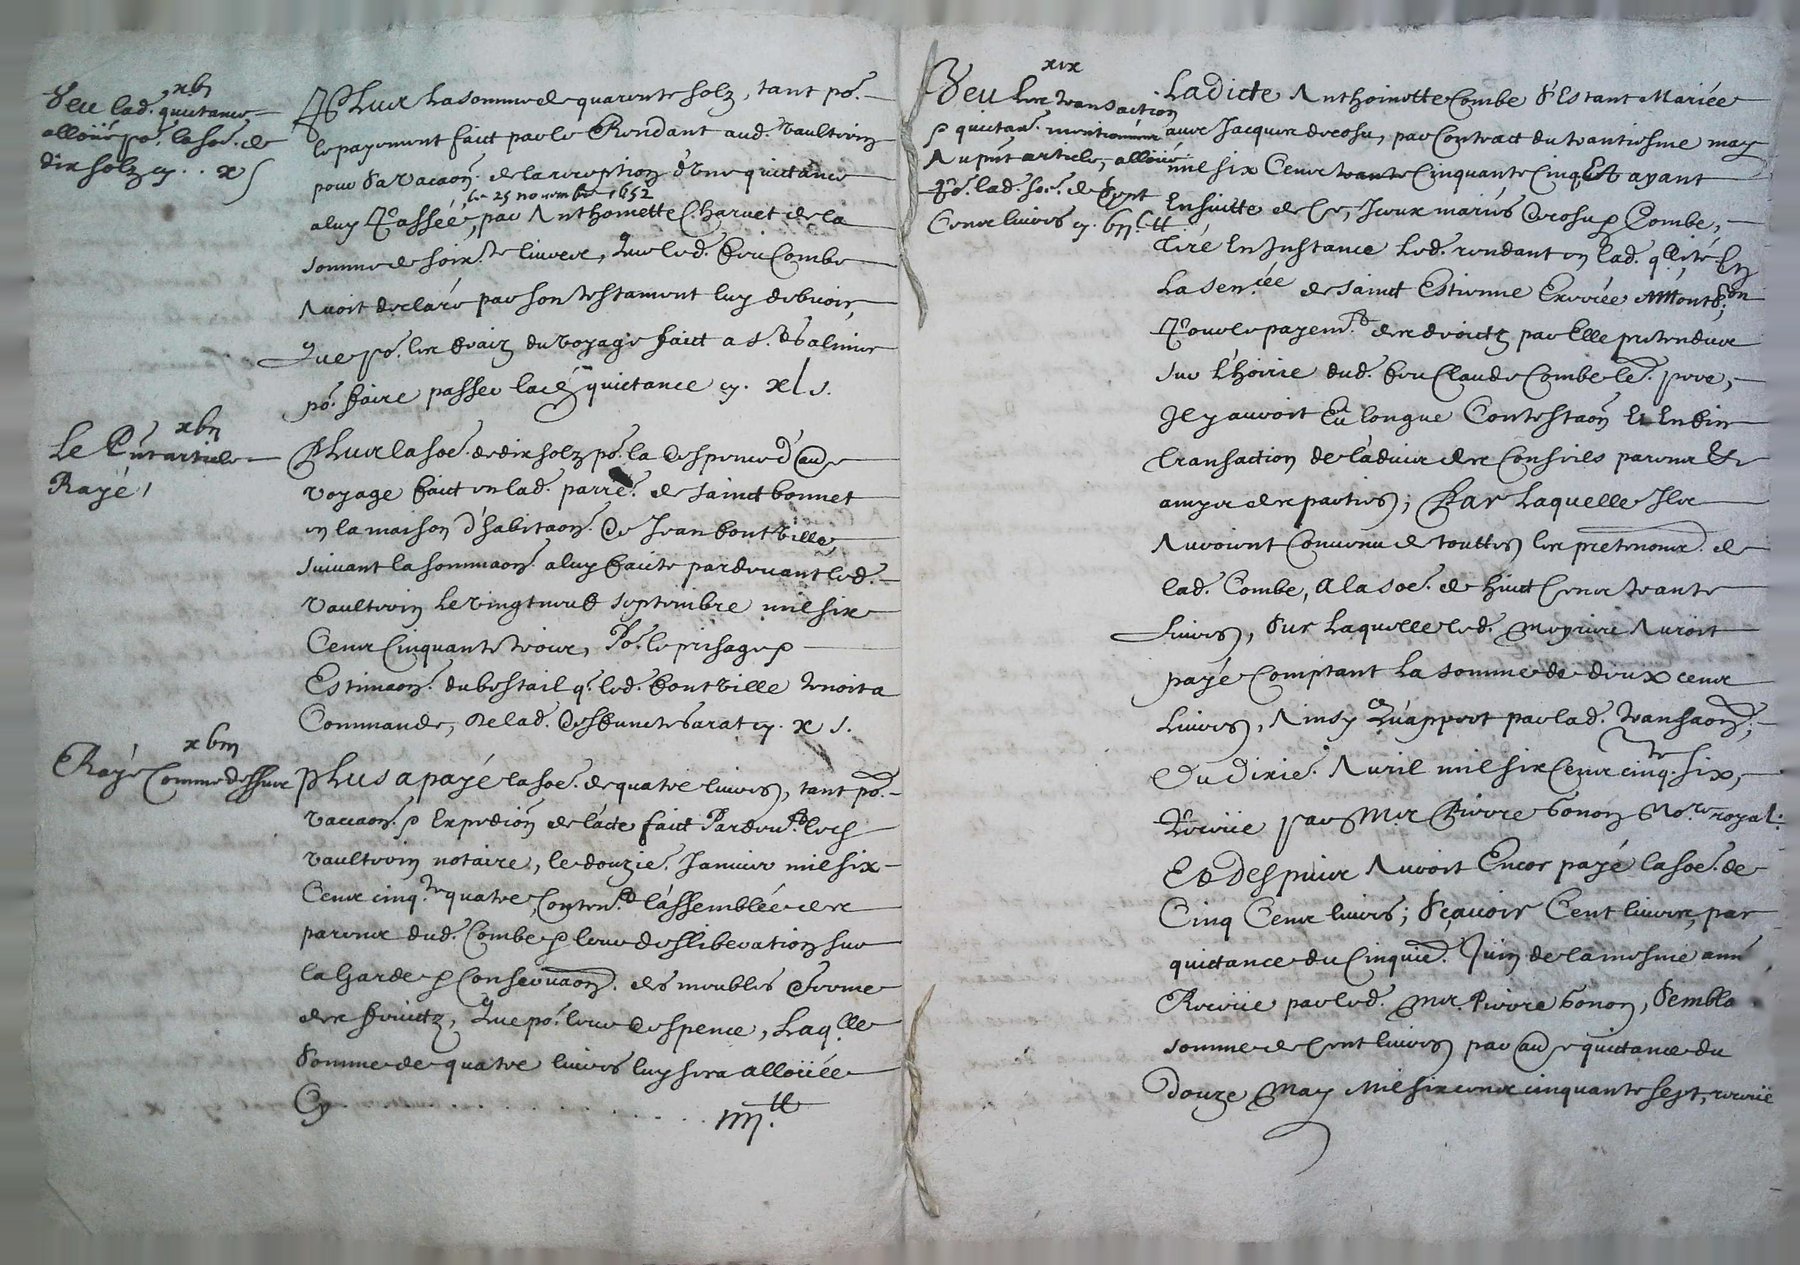 xvi
Veu lad. quictance
alloüé po.r la so.e de
dix solz cy . . x s
Plus la somme de quarente solz, tant po.r
le payement faict par le Rendant aud. Vaultrin
pour sa vacaon. de la reception d'une quictance
le 25 novembre 1652
a luy passée, par Anthoinette Charvet de la
somme de soix.te livres, que led. feu Combe
avoit declaré par son testament luy debvoir,
que po.r les fraiz du voyage faict a S.t
po.r faire passer lad. quictance cy. xl s.
xvii
Le p̄nt article
Rayé
Plus la so.e de dix solz po.r la despence d'au
voyage faict en lad. parr.e de Sainct bonnet
en la maison d'habitaon. de Jean fontville
suivant la sommaon. a luy faicte pardevant led.
Vaultrin le vingtneuf septembre mil six
Cens Cinquante trois, Po.r le prisage &
Estimaon. du bestail q. led. fontville tenoit a
Commande, de lad. deffuncte Sarat cy. x s.
xviii
Rayé Comme dessus
Plus a payé la so.e de quatre livres, tant po.r
vaccaon. & Expedion de l'acte faict Pardev.t led.
Vaultrin notaire, le douzie. Janvier mil six
Cens cinq.te quatre, Conten.t l'assemblée des
parens dud. Combe & leur desliberation sur
la Garde & Conservaon. des meubles
des fruictz, que po.r leur despence, Laq.lle
somme de quatre livres luy sera alloüée
Cy . . . . . . . . . . iiii.tt
xix
Veu les transaction
& quictan. mentionnées
Au p̄nt article, alloüé
po.r lad. so.e de Sept
Cens livres cy. vii.c tt
Ladicte Anthoinette Combe s'estant Mariée
avec Jacques decosu, par Contract du trantiesme may
mil six Cens trante Cinquante Cinq Et ayant
Ensuitte de ce, iceux mariés decosu & Combe,
tiré En Justance led. rendant en lad. qllité En
la Sen.cée de Sainct Estienne Exercée a Montb.on
Pour le payem.t des droictz par Elle pretendus
sur l'hoirie dud. feu Claude Combe le. pere,
Il y auroit Eu longue Contestaon. Et En fin
transaction de l'advis des Conseils parens &
amys des parties; Par Laquelle Ils
Auroient Convenu de touttes les pretencions. de
lad. Combe, A la so.e de huict Cens trante
livres, Sur Laquelle led. meyrieu Auroit
payé Comptant La somme de deux cens
livres, Ainsy qu'appert par lad. transaon.
du dixie. Avril mil six Cens cinq.te six,
Receüe par Me Pierre Gonon No.re royal:
Et Despuis Auroit Encor payé la so.e de
Cinq Cens livres; Sçavoir Cent livres, par
quictance du Cinquie. Juin de la mesme ann
Receüe par led. Me Pierre Gonon, Sembla
somme de Cent livres par au.e quictance du
douze May Mil six cens cinquante sept, receüe